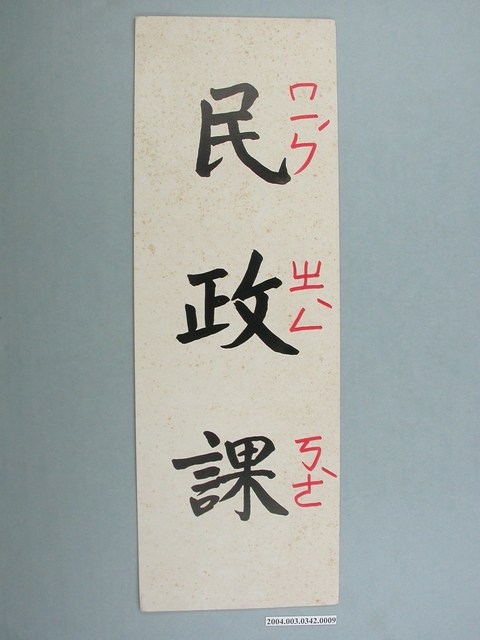 民政課
ㄇㄧㄣˊ
ㄓㄥˋ
ㄎㄜˋ
2004.003.0342.0009